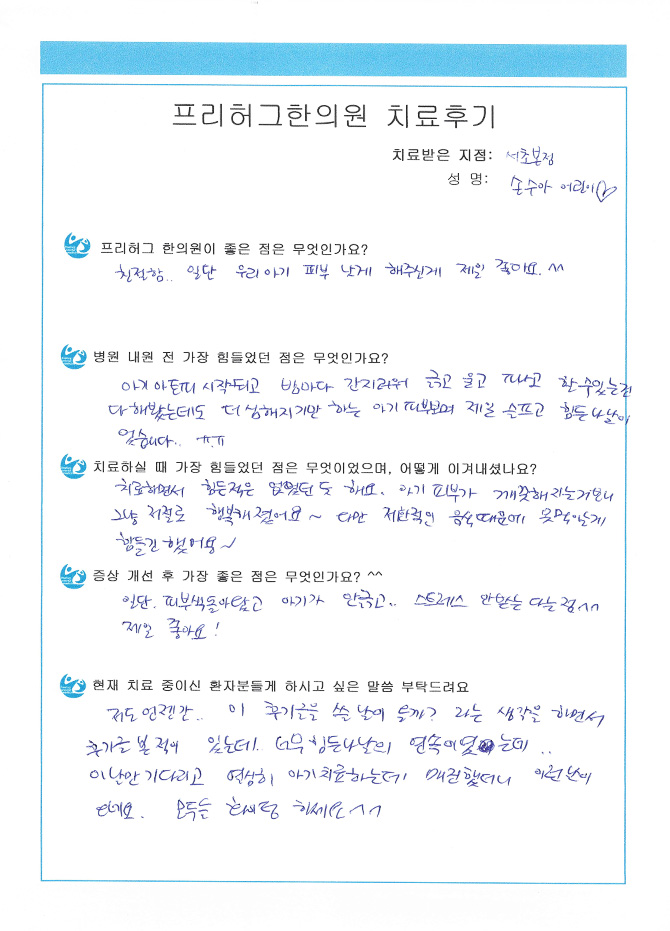 프리허그한의원 치료후기
치료받은 지점: 서초본점
성 명: 손수아 어린이♡
프리허그 한의원이 좋은 점은 무엇인가요?
친절함.. 일단 우리아기 피부 낫게 해주신게 제일 좋아요.^^
병원 내원 전 가장 힘들었던 점은 무엇인가요?
아기 아토피 시작되고 밤마다 간지러워 긁고 울고 피나고 할수있는건
다해봤는데도 더 심해지기만 하는 아기피부보며 제일 슬프고 힘든나날이
였습니다.. ㅠ.ㅠ
치료하실 때 가장 힘들었던 점은 무엇이었으며, 어떻게 이겨내셨나요?
치료하면서 힘든적은 없었던 듯 해요. 아기 피부가 깨끗해지는거보니
그냥 저절로 행복해졌어요~ 다만 제한적인 음식때문에 못먹이는게
힘들긴 했어요~
증상 개선 후 가장 좋은 점은 무엇인가요? ^^
일단. 피부색돌아왔고 아기가 안긁고.. 스트레스 안받는 다는점^^
제일 좋아요!
현재 치료 중이신 환자분들게 하시고 싶은 말씀 부탁드려요
저도 언젠간.. 이 후기글을 쓴날이 올까? 라는 생각을 하면서
후기글 본적이 있는데. 너무 힘든나날의 연속이였는데..
이날만 기다리고 열심히 아기치료하는데 매진했더니 이런날이
오네요. 모두들 화이팅 하세요^^